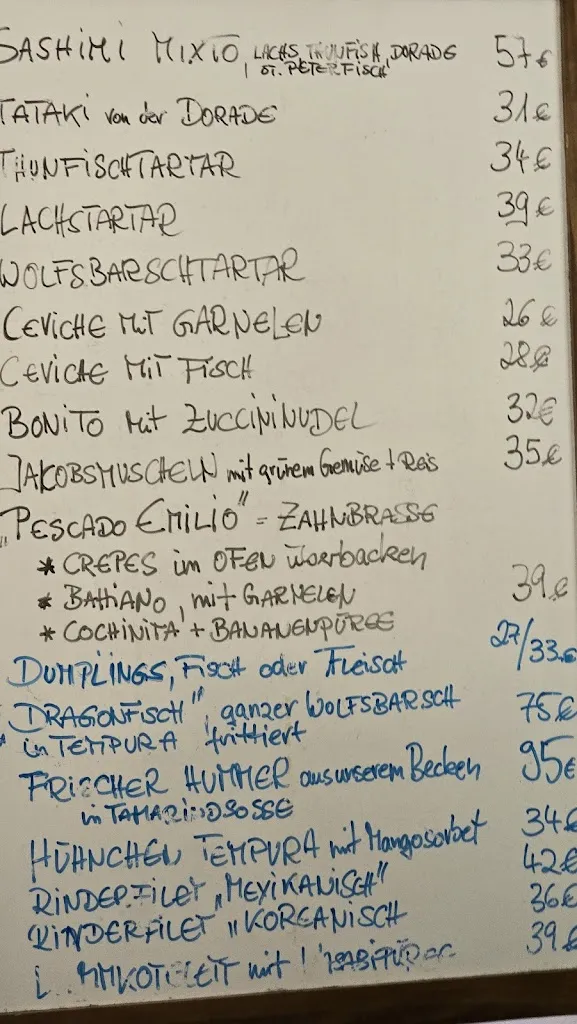 SASHIMI MIXTO, LACHS, THUNFISH, DORADE 57€
ST. PETERFISCH
TATAKI von der DORADE 31€
THUNFISCHTARTAR 34€
LACHSTARTAR 39€
WOLFSBARSCHTARTAR 33€
CEVICHE MIT GARNELEN 26€
CEVICHE MIT FISCH 28€
BONITO MIT ZUCCININUDEL 32€
JAKOBSMUSCHELN mit grünem Gemüse + Reis 35€
„PESCADO EMILIO" = ZAHNBRASSE
* CREPES im OFEN überbacken
* BAHIANO, mit GARNELEN 39€
* COCHINITA + BANANENPÜREE
DUMPLINGS, FISCH oder FLEISCH 27/33€
DRAGONFISCH", ganzer WOLFSBARSCH 75€
in TEMPURA frittiert
FRISCHER HUMMER aus unserem Becken 95€
in TAMARINDSOSSE
HÜHNCHEN TEMPURA mit Mangosorbet 34€
RINDERFILET „MEXIKANISCH" 42€
RINDERFILET „KOREANISCH 36€
mit 39€